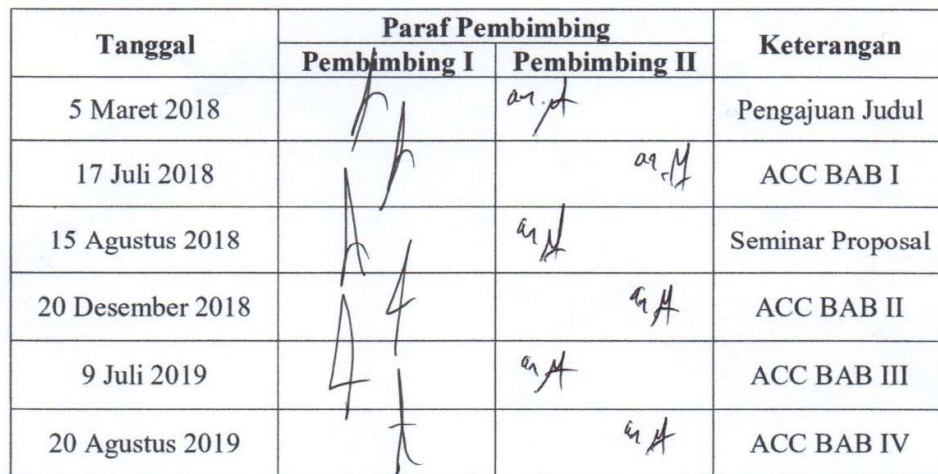 Tanggal Paraf Pembimbing Keterangan
Pembimbing I Pembimbing II
5 Maret 2018 an. Pengajuan Judul
17 Juli 2018 an. ACC BAB I
15 Agustus 2018 an Seminar Proposal
20 Desember 2018 an ACC BAB II
9 Juli 2019 an ACC BAB III
20 Agustus 2019 an ACC BAB IV